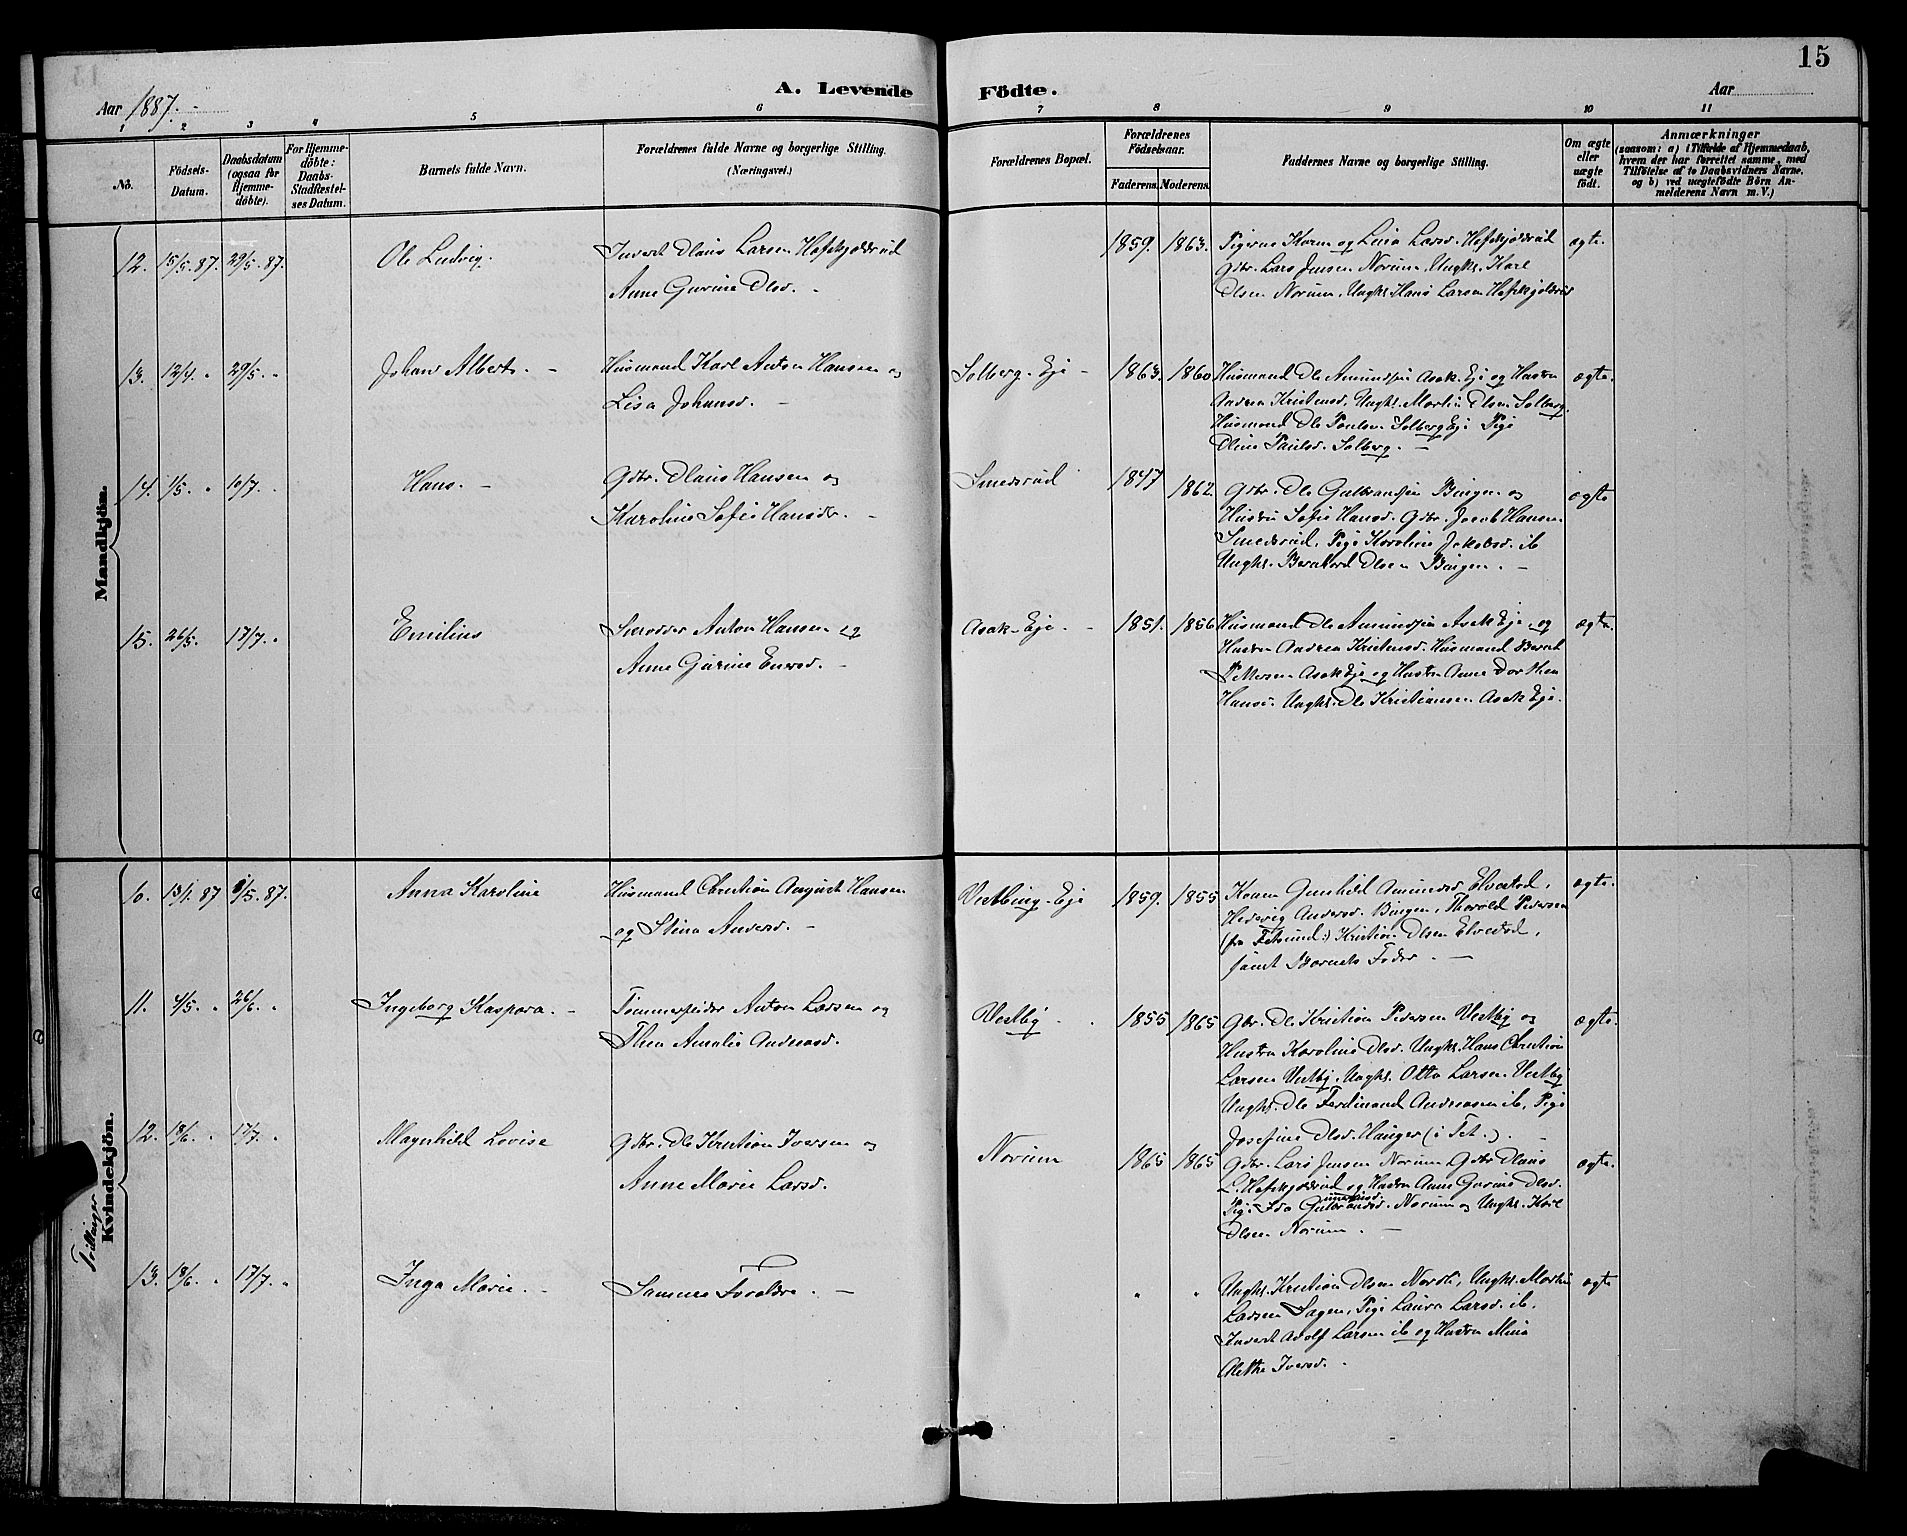 15
Aar 1887. A. Levende Födte. Aar
1 2 3 4 5 6 7 8 9 10 11
No.
Födsels-Datum.
Daabsdatum (ogsaa for Hjemme-döbte).
For Hjemme-döbte: Daabs-Stadfæstel-ses Datum.
Barnets fulde Navn.
Forældrenes fulde Navne og borgerlige Stilling. (Næringsvei.)
Forældrenes Bopæl.
Forældrenes Födselsaar.
Faderens. Moderens.
Faddernes Navne og borgerlige Stilling.
Om ægte eller uægte födt.
Anmærkninger
(saasom: a) i Tilfælde af Hjemmedaab,
hvem der har forrettet samme, med
Tilföielse af to Daabsvidners Navne,
og b) ved uægtefödte Börn An-
melderens Navn m. V.)
Mandkjön.
12. 15/5. 87. 29/5. 87. Ole Ludvig. Inderst Olaus Larsen Hofskjøldrud
Anne Gurine Olsd. -
1859. 1863. Pigerne Karen og Lina Larsd. Hofskjøldrud
Gdbr. Lars Jensen Norum, Ungk. Karl
Olsen Norum, Ungk. Hans Larsen Hofskjøldrud
ægte.
13. 12/4. " 29/5. " Johan Albert. - Husmand Karl Anton Hansen og
Lisa Johansd. -
Solberg-Eje - 1863. 1860 Husmand Ole Amundsen Asak-Eje og Hustru
Andrea Kristensd. Ungk. Martin Olsen Solberg.
Husmand Ole Paulsen Solberg Eje Pige
Oline Paulsd. Solberg. -
ægte.
14. 1/5. " 10/7. " Hans. - Gdbr. Olaus Hansen og
Karoline Sofie Hansdr. -
Smedsrud 1847 1862. Gdbr. Ole Gulbrandsen Bingen og
Hustru Sofie Hansd. Gdbr. Jacob Hansen
Smedsrud, Pige Karoline Jakobsd. ib
Ungk. Bernhard Olsen Bingen. -
ægte
15. 26/5. 17/7. " Emilius Anton Hansen og
Anne Gurine Enersd. -
Asak-Eje. - 1851. 1856 Husmand Ole Amundsen Asak Eje, og
Hustru Andrea Kristensd. Husmand Bernt
Pettersen Asak Eje og Hustru Anne Dorthea
Hansd. Ungk. Ole Kristiansen Asak Eje.
ægte.
Kvindekjön.
10. 13/1. 87 8/5. 87. Anna Karoline Husmand Christian August Hansen
og Stina Andersd. -
Vestbing-Eje 1859. 1855 Konen Gunhild Amundsd. Elvestad,
Hedevig Andersd. Bingen, Thorvald Pedersen
(fra Fetsund:) Kristian Olsen Elvestad,
samt Barnets Fader. -
ægte.
11. 4/5. " 26/6. " Ingeborg Kaspara. - Tømmerfløder Anton Larsen og
Thea Amalie Andersd.
Vestby - 1855 1865 Gdbr. Ole Kristian Pedersen Vestby og
Hustru Karoline Olsd. Ungk. Hans Christian
Larsen Vestby. Ungk. Otto Larsen Vestby
Ungk. Ole Ferdinand Andersen ib, Pige
Josefine Olsd. Hauger (i Fet.). -
ægte.
Tvillinger
12. 18/6. " 17/7. " Magnhild Lovise Gdbr. Ole Kristian Iversen og
Anne Marie Larsd.
Norum 1865 1865 Gdbr. Lars Jensen Norum Gdbr Olaus
L. Hofskjøldrud og Hustru Anne Gurine Olsd.
Pige Ida Gulbrandsd. Norum og Ungk. Karl
Olsen Norum. -
ægte.
13. 18/6. " 17/7. " Inga Marie. - Samme Forældre. -
" " Ungk. Kristian Olsen Nordli, Ungk. Martin
Larsen Sagen, Pige Laura Larsd. ib.
Inderst Adolf Larsen ib og Hustru Mina
Alethe Iversd. -
ægte